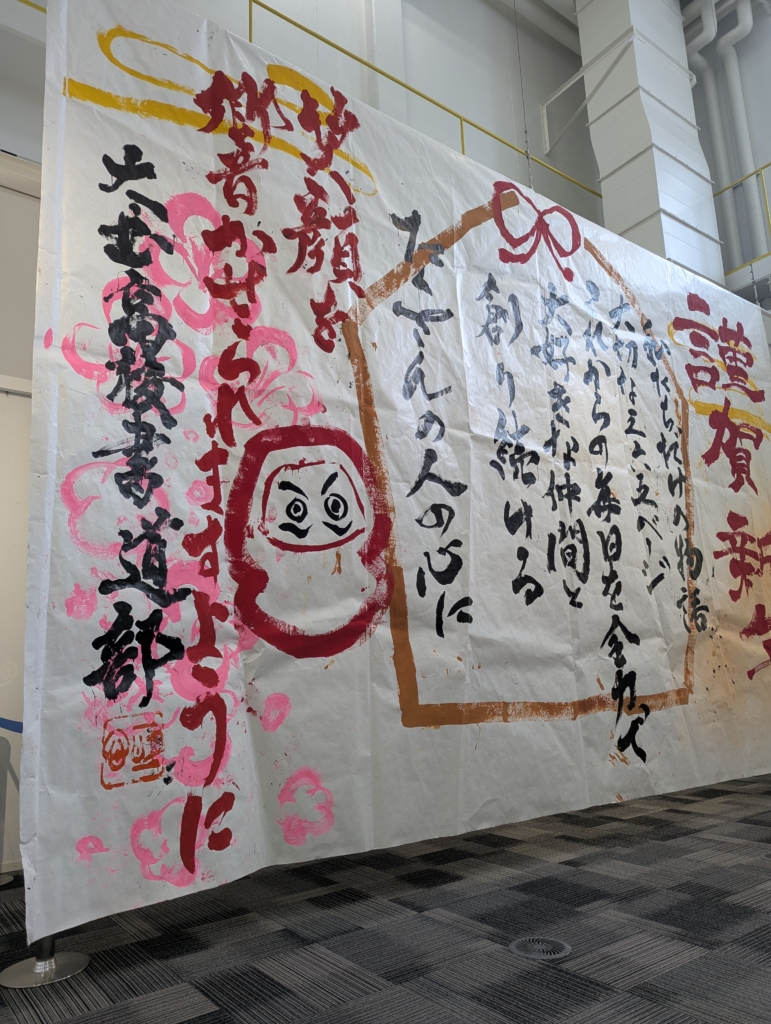 謹賀新年
私たちだけの物語
大切な三六五ページ
これからの毎日を全力で
大好きな仲間と
創り続ける
たくさんの人の心に
笑顔を
響かせられますように
高校書道部